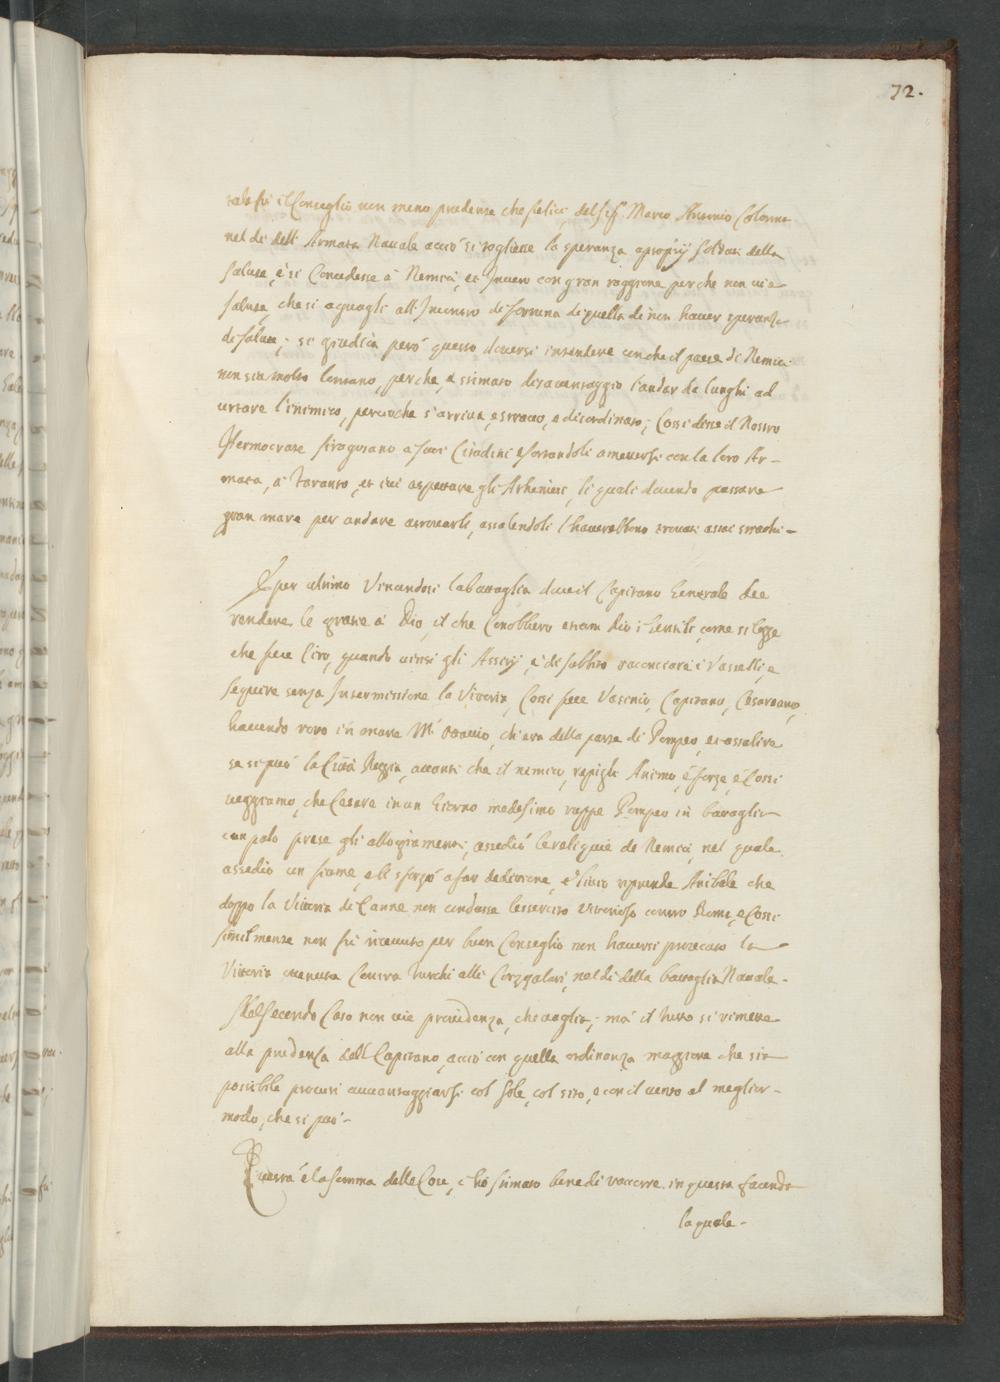 72.
tale fù il Conseglio non meno prudente che felice del sig.r Marco Antonio Colonna
nel dì dell'Armata Navale acciò si togliesse la speranza a proprij soldati della
salute, e si concedesse à Nemici, et Invero con gran raggione perche non vi è
salute, che si aguagli all'Incontro di fortuna di quella di non haver speranza
di salute; si giudica però questo doversi intendere con che il paese di Nemici
non sia molto lontano, perche è stimato disavantaggio l'andar da lunghi ad
urtare l'inimico, percioche s'arriva stracco, e disordinato; Cossi disse il Nostro
Hermocrate siragusano a suoi Citadini essortandoli a moversi con la loro Ar-
mata, à Taranto, et ivi aspettare gli Atheniesi, li quali dovendo passare
gran mare per andare a trovarli, assalendoli l'haverebbono trovati assai stracchi-
E per ultimo Vincendosi la battaglia dove il Capitano Generale dee
rendere le gratie à Dio, il che Conobbero etiam dio i Gentili, come si legge
che fece Ciro, quando vinsi gli Assirij, e di subbito racconciare i Vasselli, e
sequire senza Intermissione la Vittoria, Cossi fece Vatinio, Capitano, Cesareano,
havendo rotto in mare M. Ottavio, ch'era della parte di Pompeo, et assalire
se si può la Città Reggia, avanti che il nemico, repigli Animo, e forze, e Cossi
veggiamo, che Cesare in un Giorno medesimo ruppe Pompeo in battaglia
prese gli alloggiamenti, assediò le reliquie de Nemici, nel quale
assedio un fiume, e li sforzò a far deditione, e Livio riprende Anibale che
doppo la Vittoria di Canne non condusse l'essercito Vitorioso contro Roma, e Cossi
similmente non fù ricevuto per buon Conseglio non haversi procurato la
Vittoria ottenuta Contra Turchi alli Corzolari, nel dì della battaglia Navale-
Nel secondo Caso non vi è providenza, che vaglia; mà il tutto si rimette
alla prudenza dell Capitano, acciò con quella ordinanza maggiore che sia
possibile procuri avvantaggiarsi col sole, col sito, e con il vento al meglior-
modo, che si può-
Questa è la somma delle Cose, c'hò stimato bene di raccorre in questa facenda
la quale-